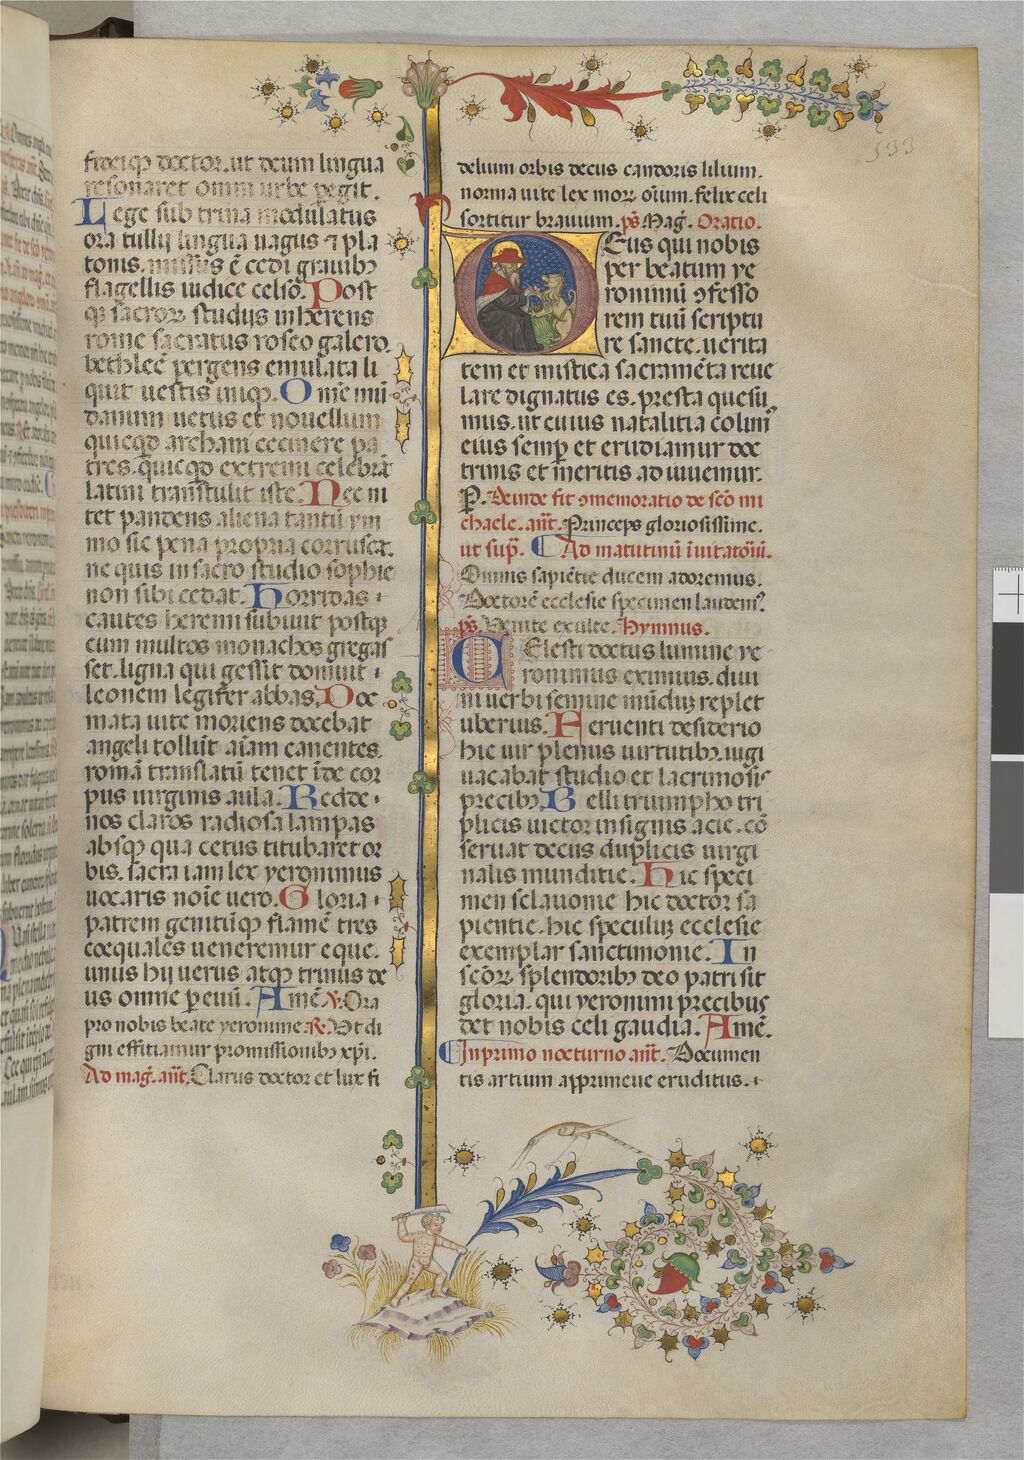 fideiqȝ doctor. ut deum lingua
resonaret omni urbe pegit.
Lege sub trina modulatus
ora tullij lingua uagus ⁊ pla
tonis. missus ē cedi grauibȝ
flagellis iudice celso. Post
qȝ sacroꝝ studijs inherens
rome sacratus roseo galero.
bethleē pergens emulata li
quit uestis iniqȝ. Om̄e mū
danum uetus et nouellum
quicqd archam cecinere pa
tres. quicqd extremi celebrāt
latini transtulit iste. Nec ni
tet pandens aliena tantū ym
mo sic pena propria corruscat.
ne quis in sacro studio sophie
non sibi cedat. Horridas
cautes heremi subiuit postqȝ
cum multos monachos gregas
set. ligna qui gessit domuit
leonem legifer abbas. Doc
mata uite moriens docebat
angeli tollūt aīam canentes.
romā translatū tenet īde cor
pus uirginis aula. Redde
nos claros radiosa lampas
absqȝ qua cetus titubaret or
bis. sacra iam lex yeronimus
uocaris noīe uero. Gloria
patrem genitūqȝ flamē tres
coequales ueneremur eque.
unus hij uerus atqȝ trinus de
us omne p euū. Amē. V. Ora
pro nobis beate yeronime. R. Vt di
gni efficiamur promissionibȝ xpi.
Ad mag. ant. Clarus doctor et lux fi
delium orbis decus candoris lilium.
norma uite lex moꝝ oīum. felix celi
sortitur brauium. ps. Mag. Oratio.
Deus qui nobis
per beatum ye
ronimū ꝯfesso
rem tuū scriptu
re sancte. uerita
tem et mistica sacramēta reue
lare dignatus es. presta quesu
mus. ut cuius natalitia colimꝰ
eius semp et erudiamur doc
trinis et meritis adiuuemur.
P. Deinde fit ꝯmemoratio de scō mi
chaele. ant. Princeps gloriosissime.
ut sup. Ad matutinū īuitatoiū.
Omnis sapiētie ducem adoremus.
Doctorē ecclesie specimen laudemꝰ.
ps. Venite exulte. Hymnus.
Celesti doctus lumine ye
ronimus eximius. diui
ni uerbi semine mūdūȝ replet
uberius. Feruenti desiderio
hic uir plenus uirtutibȝ. iugi
uacabat studio et lacrimosis
precibȝ. Belli triumpho tri
plicis uictor insignis acie. cō
seruat decus duplicis uirgi
nalis munditie. Hic speci
men sclauonie hic doctor sa
pientie. hic speculuȝ ecclesie
exemplar sanctimonie. In
scōꝝ splendoribȝ deo patri sit
gloria. qui yeronimi precibus
det nobis celi gaudia. Amē.
In primo nocturno ant. Documen
tis artium apprimeue eruditus.